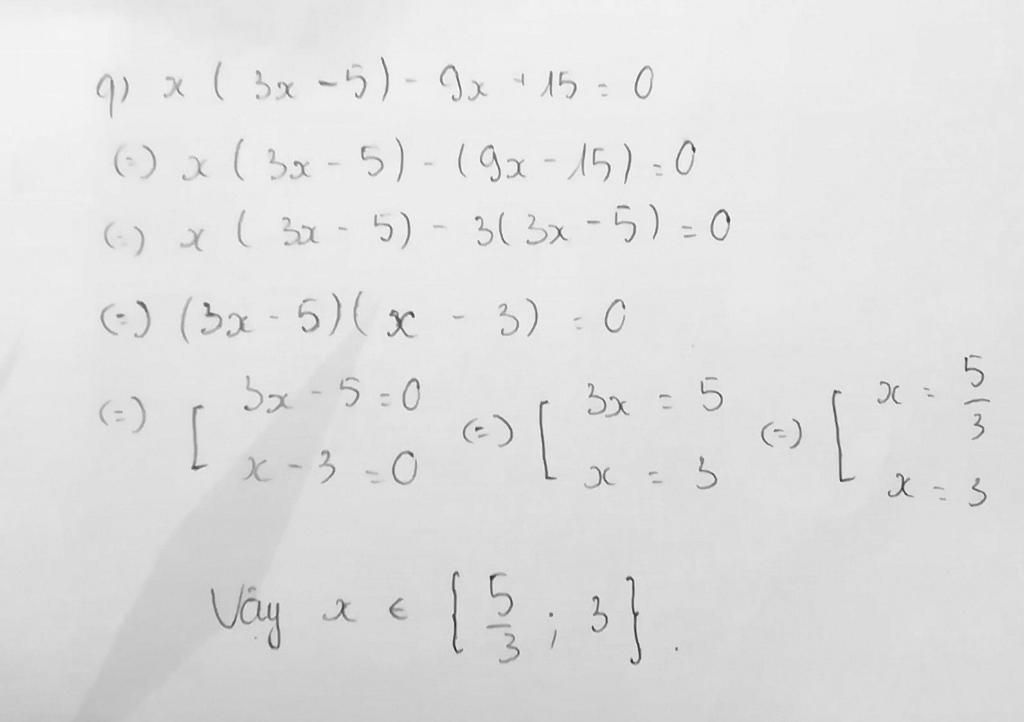 q) x ( 3x - 5) - 9x + 15 = 0
(=) x ( 3x - 5) - (9x - 15) = 0
(=) x ( 3x - 5) - 3(3x - 5) = 0
(=) (3x - 5)( x - 3) = 0
(=) [ 3x - 5 = 0 (=) [ 3x = 5 (=) [ x = 5/3
x - 3 = 0 x = 3 x = 3
Vậy x ∈ { 5/3 ; 3 } .